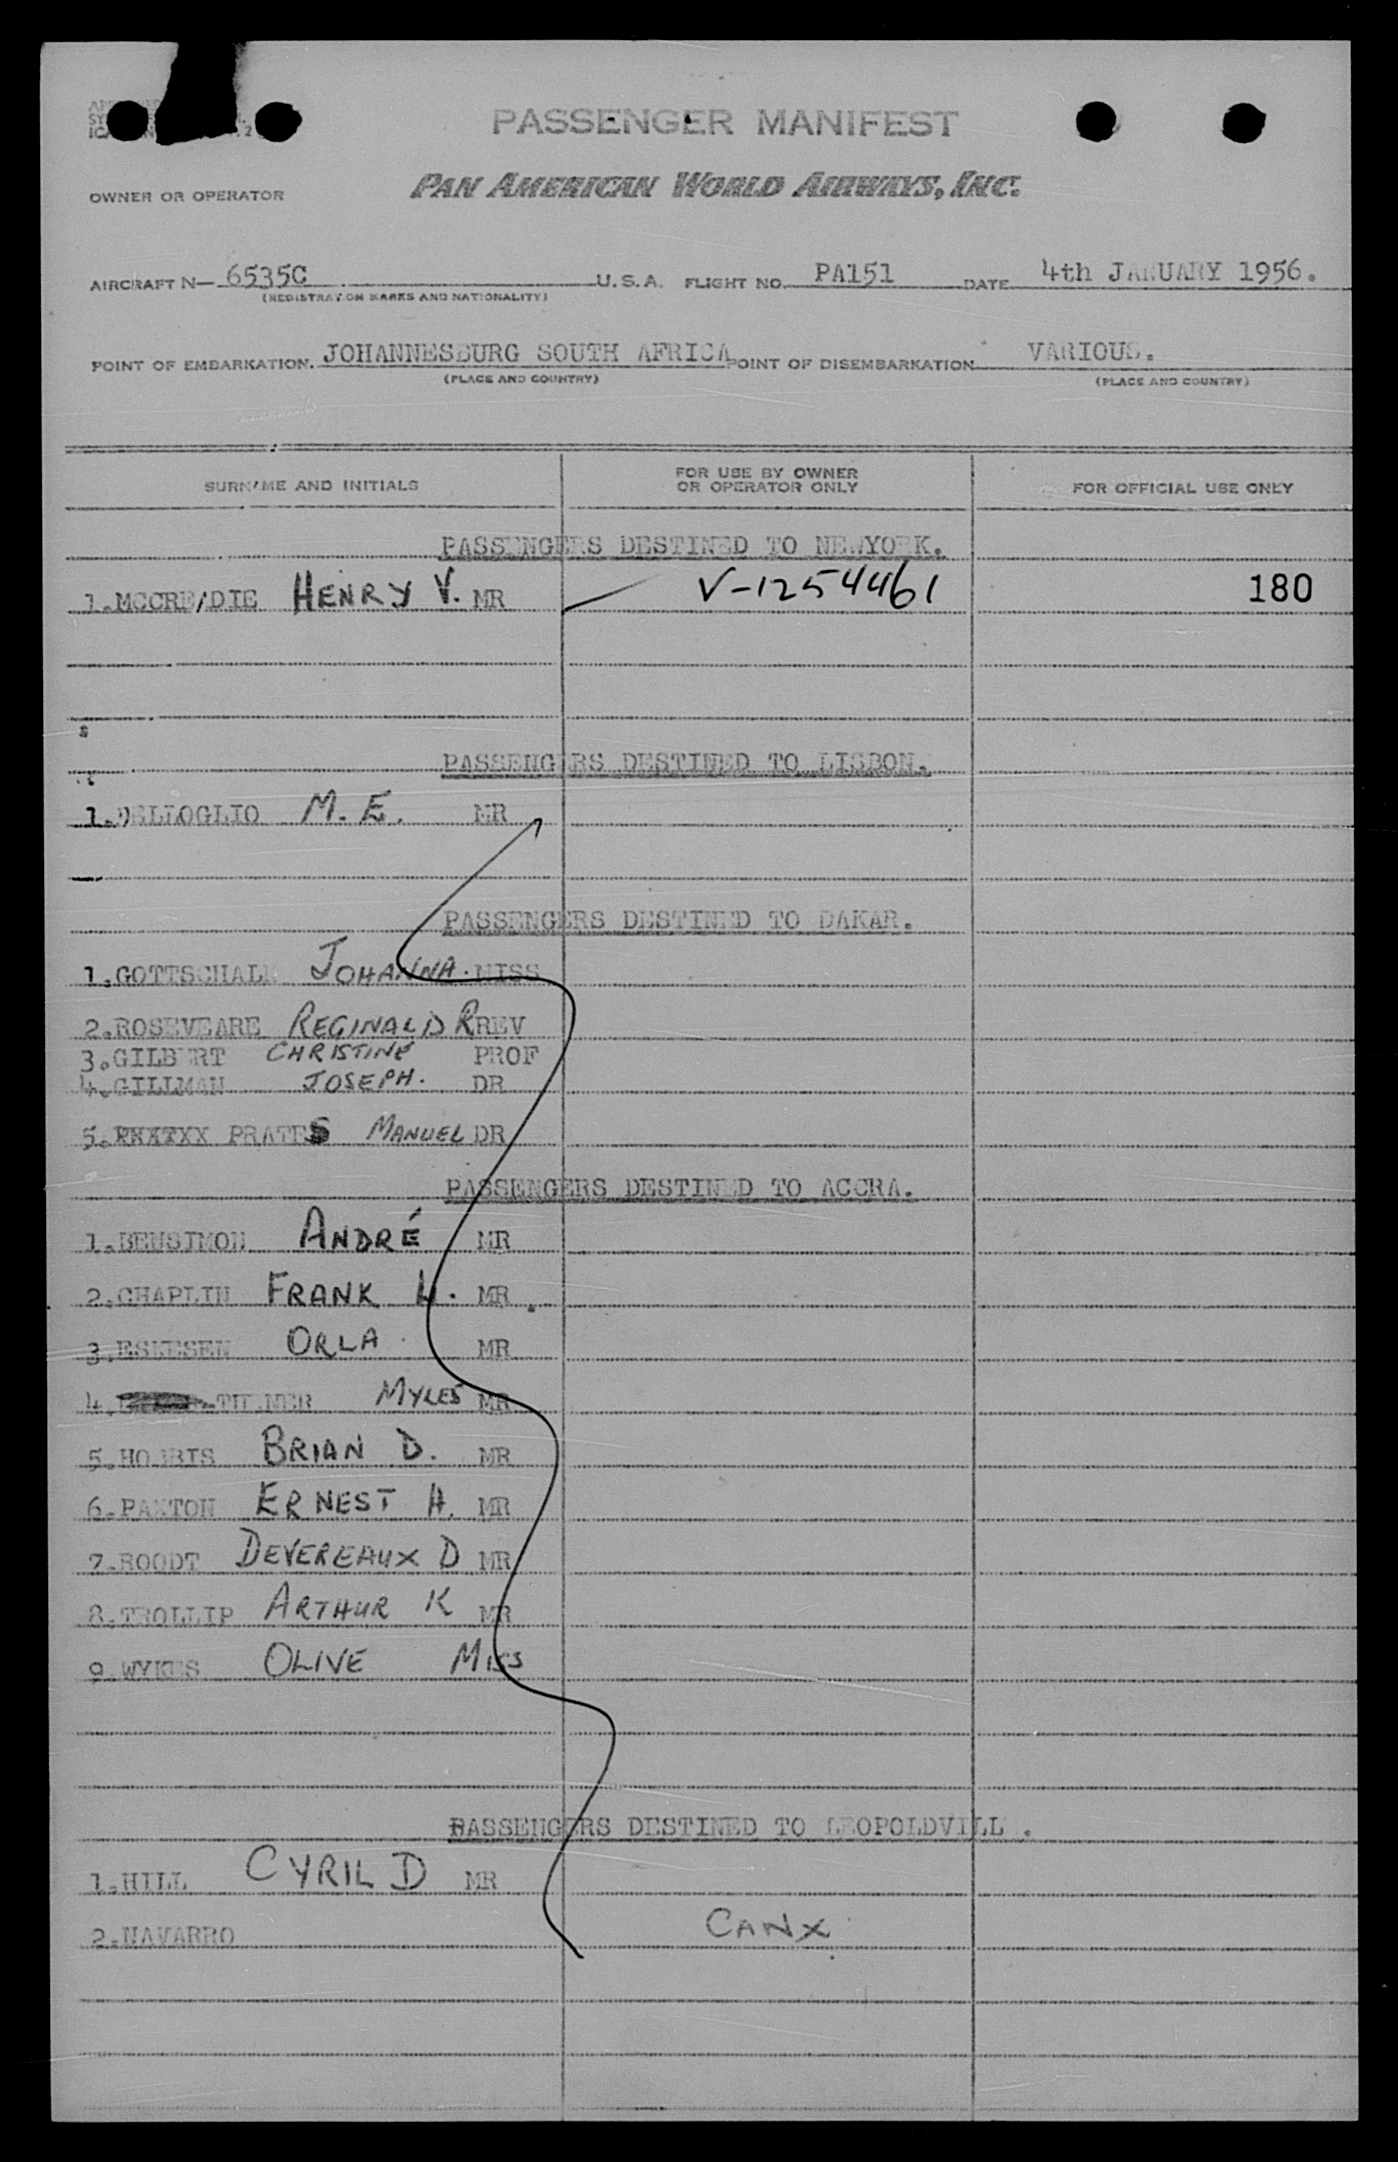 PASSENGER MANIFEST
OWNER OR OPERATOR PAN AMERICAN WORLD AIRWAYS, INC.
AIRCRAFT N— 6535C U.S.A. FLIGHT NO. PA151 DATE 4th JANUARY 1956.
(REGISTRATION MARKS AND NATIONALITY)
POINT OF EMBARKATION. JOHANNESBURG SOUTH AFRICA POINT OF DISEMBARKATION VARIOUS.
(PLACE AND COUNTRY) (PLACE AND COUNTRY)
SURNAME AND INITIALS FOR USE BY OWNER OR OPERATOR ONLY FOR OFFICIAL USE ONLY
PASSENGERS DESTINED TO NEWYORK.
1.MOCRE/DIE HENRY V. MR V-1254461 180
PASSENGERS DESTINED TO LISBON.
1.DELLOGLIO M. E. MR
PASSENGERS DESTINED TO DAKAR.
1.GOTTSCHALK JOHANNA. MISS
2.ROSEVEARE REGINALD R REV
3.GILBERT CHRISTINE PROF
4.GILLMAN JOSEPH. DR
5. PRATES MANUEL DR
PASSENGERS DESTINED TO ACCRA.
1.BENSIMON ANDRÉ MR
2.CHAPLIN FRANK H. MR.
3.ESKESEN ORLA MR
4. MYLES MR
5.HOBBIS BRIAN D. MR
6.PAXTON ERNEST H. MR
7.ROODT DEVEREAUX D MR
8.TROLLIP ARTHUR K MR
9.WYKES OLIVE MISS
PASSENGERS DESTINED TO LEOPOLDVILLE.
1.HILL CYRIL D MR
2.NAVARRO CANX